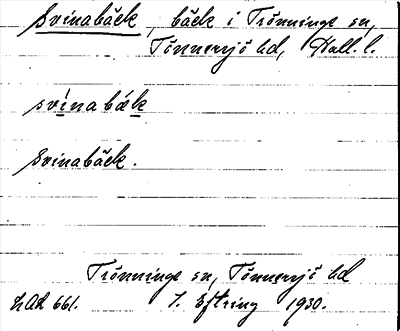 Svinabäck, bäck i Trönninge sn,
Tönnersjö hd, Hall. l.
svinabäk
Svinabäck.
Trönninge sn, Tönnersjö hd
LAL 661. J. Eftring 1930.